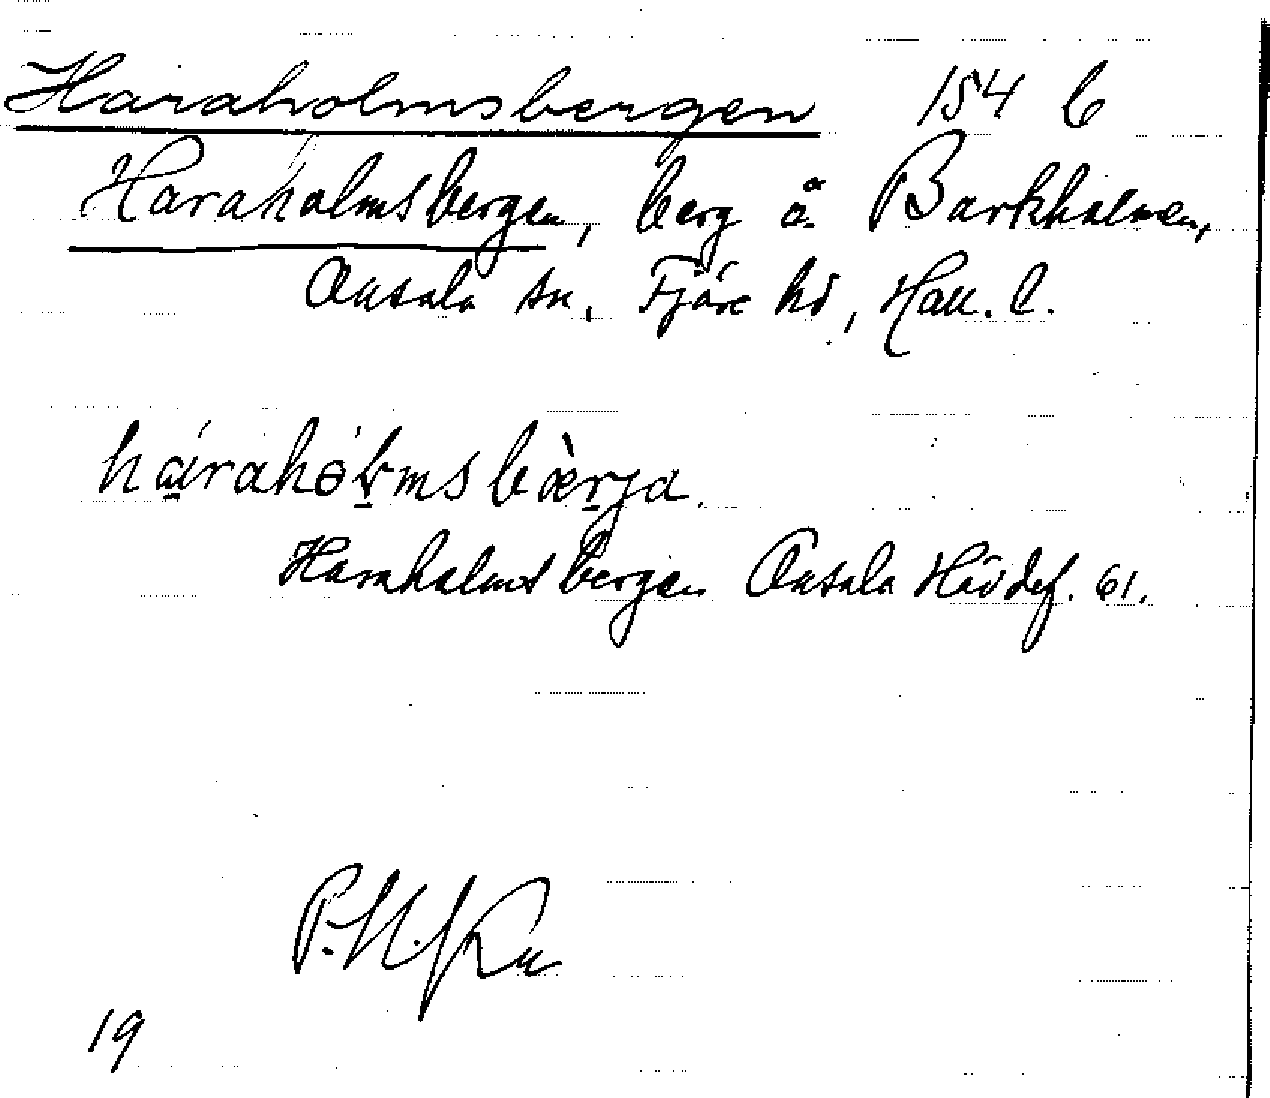 Haraholmsbergen 154 b
Haraholmsbergen, berg å Barkholmen,
Onsala sn, Fjäre hd, Hall. l.
háraholmsbærja.
Haraholmsbergen Onsala
61.
19